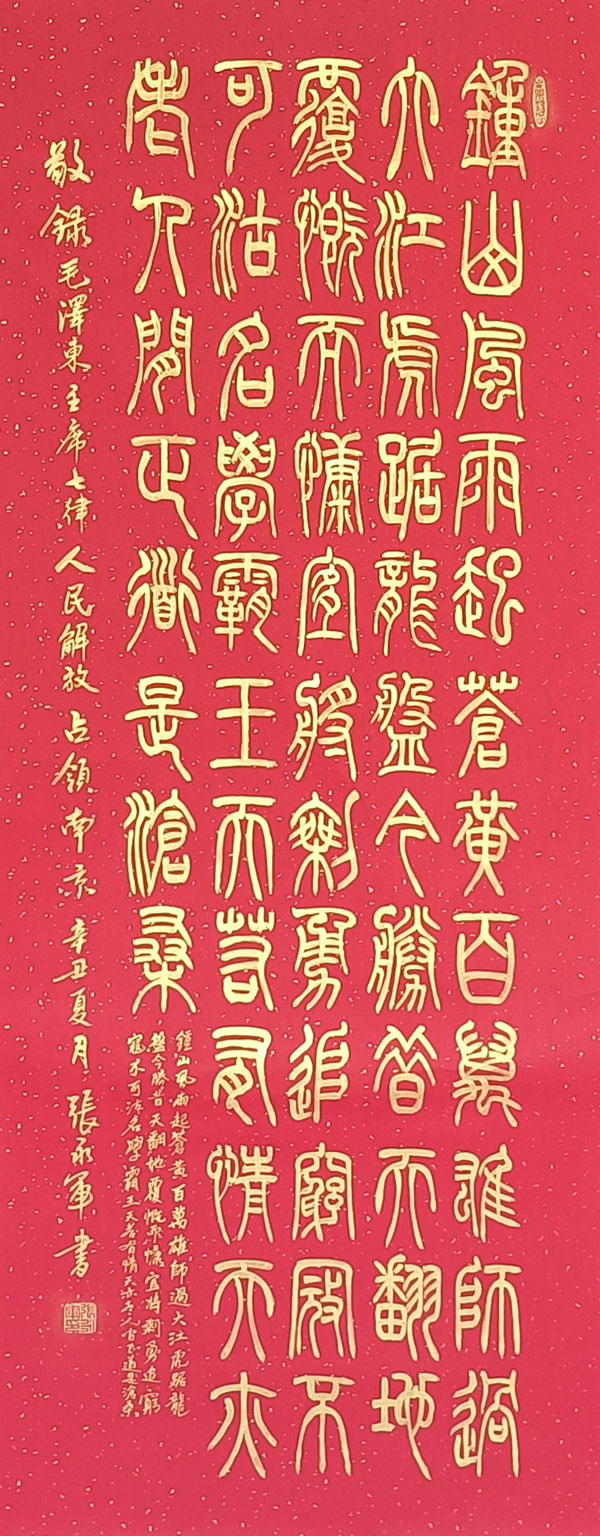 鍾山風雨起蒼黃百萬雄師過
大江虎踞龍盤今勝昔天翻地
覆慨而慷宜將剩勇追窮寇不
可沽名學霸王天若有情天亦
老人間正道是滄桑
鍾山風雨起蒼黃百萬雄師過大江虎踞龍
盤今勝昔天翻地覆慨而慷宜將剩勇追窮
寇不可沽名學霸王天若有情天亦老人間正道是滄桑
敬錄毛澤東主席七律人民解放占領南京辛丑夏月張永軍書